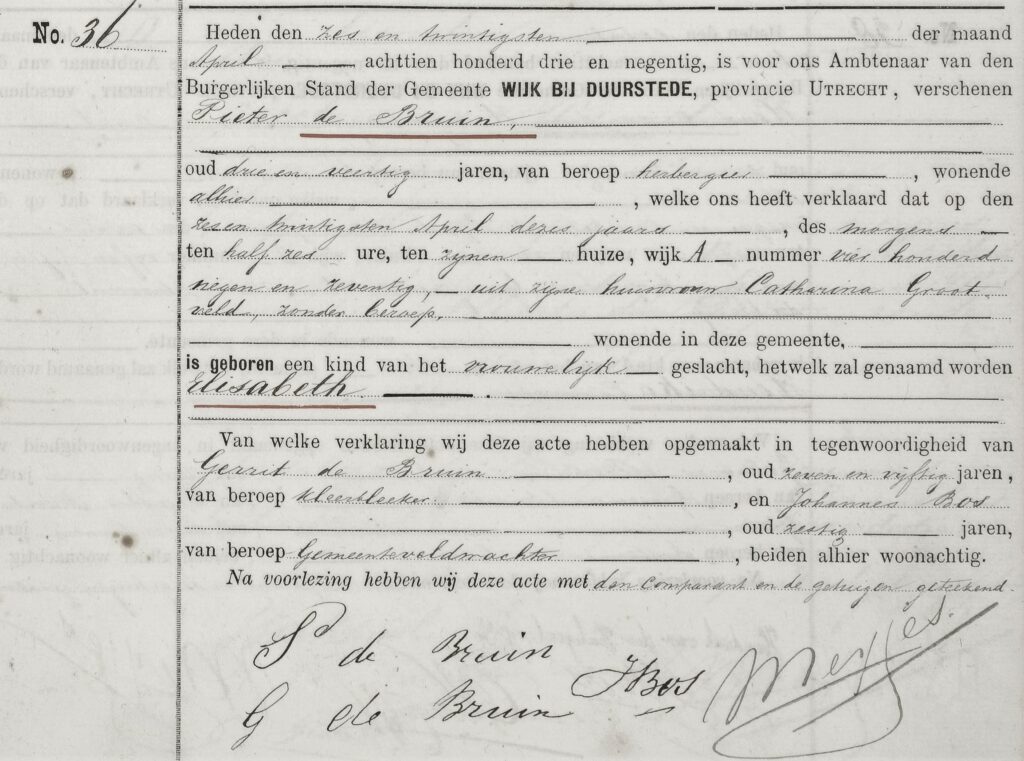 No. 36
Heden den zes en twintigsten der maand
April achttien honderd drie en negentig, is voor ons Ambtenaar van den
Burgerlijken Stand der Gemeente WIJK BIJ DUURSTEDE, provincie UTRECHT, verschenen
Pieter de Bruin,
oud drie en veertig jaren, van beroep herbergier, wonende
alhier, welke ons heeft verklaard dat op den
zesen twintigsten April dezes jaars, des morgens
ten half zes ure, ten zijnen huize, wijk A nummer vier honderd
negen en zeventig, uit zijne huisvrouw Catharina Groot
veld, zonder beroep,
wonende in deze gemeente,
is geboren een kind van het vrouwelijk geslacht, hetwelk zal genaamd worden
Elisabeth.
Van welke verklaring wij deze acte hebben opgemaakt in tegenwoordigheid van
Gerrit de Bruin, oud zeven en vijftig jaren,
van beroep kleerbleeker, en Johannes Bos
, oud zestig jaren,
van beroep Gemeenteveldwachter, beiden alhier woonachtig.
Na voorlezing hebben wij deze acte met den comparant en de getuigen geteekend.
P de Bruin
G de Bruin JBos